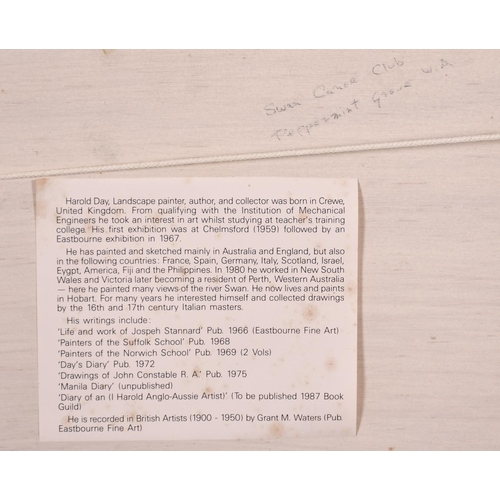 Swan Canoe Club
Peppermint Grove W.A
Harold Day, Landscape painter, author, and collector was born in Crewe,
United Kingdom. From qualifying with the Institution of Mechanical
Engineers he took an interest in art whilst studying at teacher's training
college. His first exhibition was at Chelmsford (1959) followed by an
Eastbourne exhibition in 1967.
He has painted and sketched mainly in Australia and England, but also
in the following countries: France, Spain, Germany, Italy, Scotland, Israel,
Eygpt, America, Fiji and the Philippines. In 1980 he worked in New South
Wales and Victoria later becoming a resident of Perth, Western Australia
— here he painted many views of the river Swan. He now lives and paints
in Hobart. For many years he interested himself and collected drawings
by the 16th and 17th century Italian masters.
His writings include:
'Life and work of Jospeh Stannard' Pub. 1966 (Eastbourne Fine Art)
'Painters of the Suffolk School' Pub. 1968
'Painters of the Norwich School' Pub. 1969 (2 Vols)
'Day's Diary' Pub. 1972
'Drawings of John Constable R. A.' Pub. 1975
'Manila Diary' (unpublished)
'Diary of an (I Harold Anglo-Aussie Artist)' (To be published 1987 Book
Guild)
He is recorded in British Artists (1900 - 1950) by Grant M. Waters (Pub.
Eastbourne Fine Art)